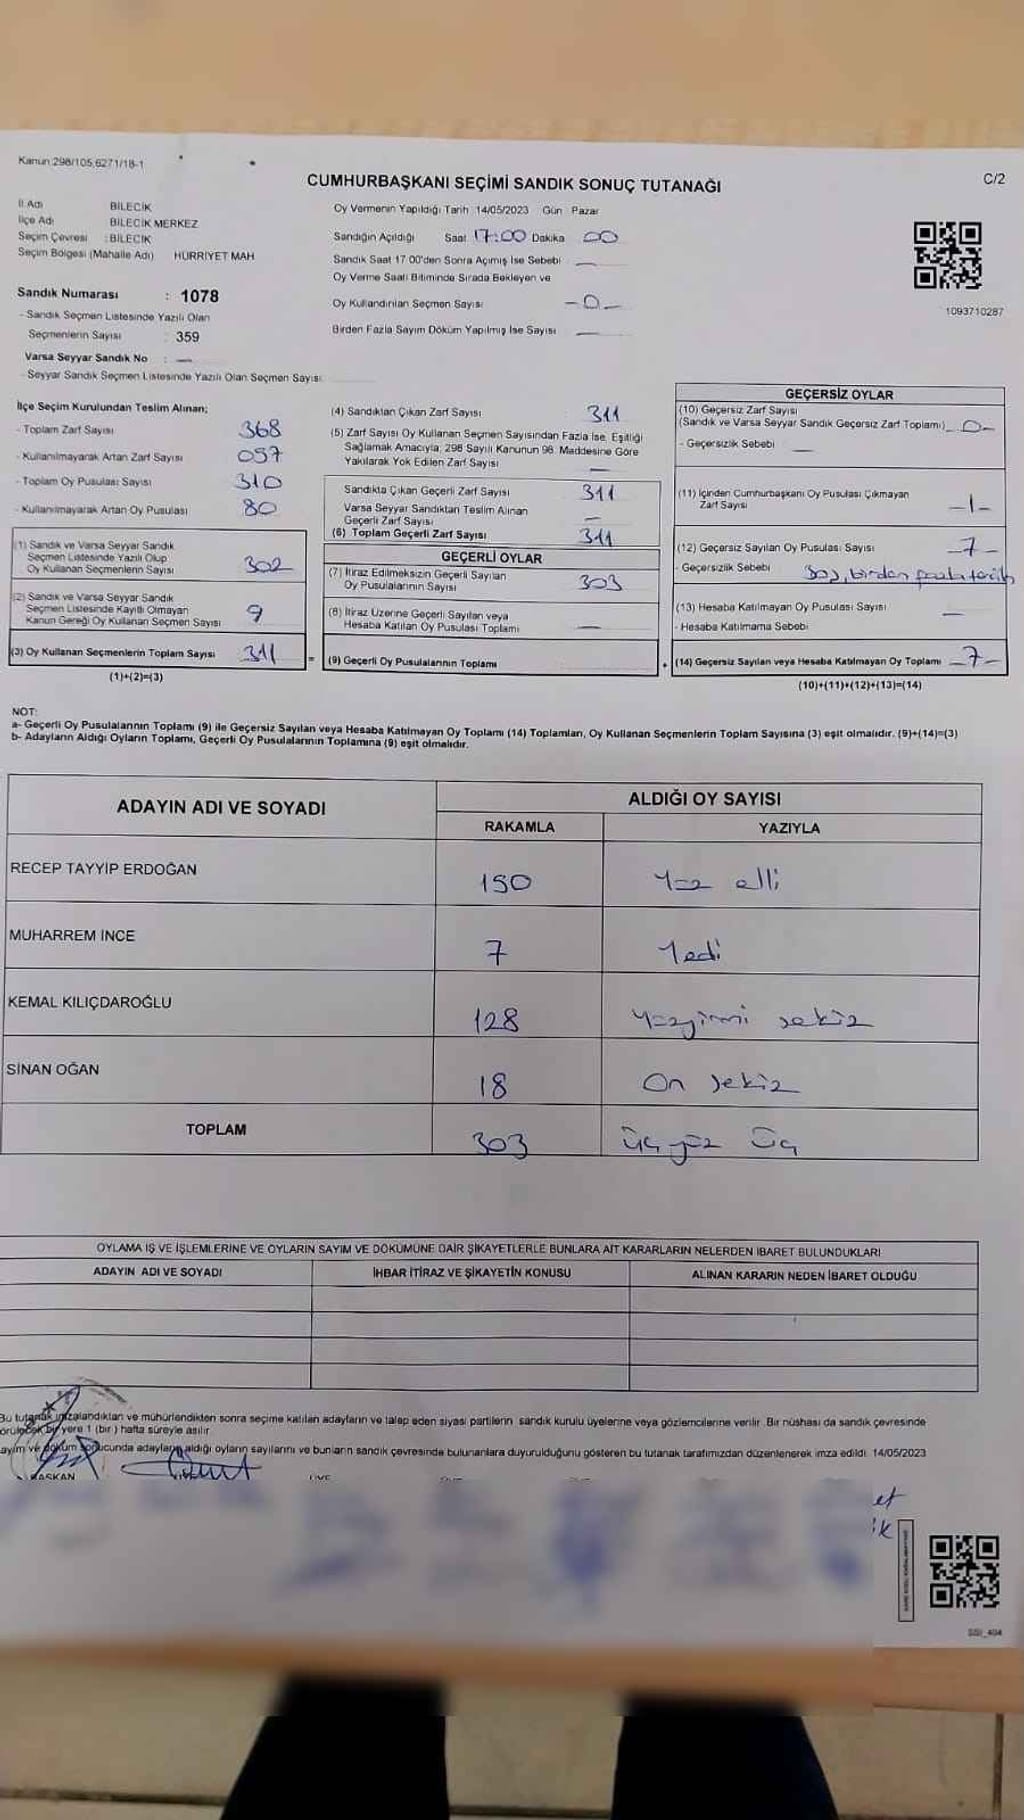 Kanun:298/105,6271/18-1
CUMHURBAŞKANI SEÇİMİ SANDIK SONUÇ TUTANAĞI
C/2
İl Adı BİLECİK
İlçe Adı BİLECİK MERKEZ
Seçim Çevresi : BİLECİK
Seçim Bölgesi (Mahalle Adı) HÜRRİYET MAH
Sandık Numarası : 1078
- Sandık Seçmen Listesinde Yazılı Olan
Seçmenlerin Sayısı : 359
Varsa Seyyar Sandık No : —
- Seyyar Sandık Seçmen Listesinde Yazılı Olan Seçmen Sayısı:
Oy Vermenin Yapıldığı Tarih 14/05/2023 Gün Pazar
Sandığın Açıldığı Saat 17:00 Dakika 00
Sandık Saat 17 00'den Sonra Açımış İse Sebebi —
Oy Verme Saati Bitiminde Sırada Bekleyen ve
Oy Kullandırılan Seçmen Sayısı -0-
Birden Fazla Sayım Döküm Yapılmış İse Sayısı —
1093710287
İlçe Seçim Kurulundan Teslim Alınan;
- Toplam Zarf Sayısı 368
- Kullanılmayarak Artan Zarf Sayısı 057
- Toplam Oy Pusulası Sayısı 310
- Kullanılmayarak Artan Oy Pusulası 80
(1) Sandık ve Varsa Seyyar Sandık
Seçmen Listesinde Yazılı Olup
Oy Kullanan Seçmenlerin Sayısı 302
(2) Sandık ve Varsa Seyyar Sandık
Seçmen Listesinde Kayıtlı Olmayan
Kanun Gereği Oy Kullanan Seçmen Sayısı 9
(3) Oy Kullanan Seçmenlerin Toplam Sayısı 311
(1)+(2)=(3)
(4) Sandıktan Çıkan Zarf Sayısı : 311
(5) Zarf Sayısı Oy Kullanan Seçmen Sayısından Fazla İse, Eşitliği
Sağlamak Amacıyla, 298 Sayılı Kanunun 98. Maddesine Göre
Yakılarak Yok Edilen Zarf Sayısı —
Sandıkta Çıkan Geçerli Zarf Sayısı 311
Varsa Seyyar Sandıktan Teslim Alınan
Geçerli Zarf Sayısı —
(6) Toplam Geçerli Zarf Sayısı 311
GEÇERLİ OYLAR
(7) İtiraz Edilmeksizin Geçerli Sayılan
Oy Pusulalarının Sayısı 303
(8) İtiraz Üzerine Geçerli Sayılan veya
Hesaba Katılan Oy Pusulası Toplamı —
= (9) Geçerli Oy Pusulalarının Toplamı
GEÇERSİZ OYLAR
(10) Geçersiz Zarf Sayısı
(Sandık ve Varsa Seyyar Sandık Geçersiz Zarf Toplamı) -0-
- Geçersizlik Sebebi —
(11) İçinden Cumhurbaşkanı Oy Pusulası Çıkmayan
Zarf Sayısı -1-
(12) Geçersiz Sayılan Oy Pusulası Sayısı -7-
- Geçersizlik Sebebi birden fazla tercih
(13) Hesaba Katılmayan Oy Pusulası Sayısı —
- Hesaba Katılmama Sebebi
+ (14) Geçersiz Sayılan veya Hesaba Katılmayan Oy Toplamı -7-
(10)+(11)+(12)+(13)=(14)
NOT:
a- Geçerli Oy Pusulalarının Toplamı (9) ile Geçersiz Sayılan veya Hesaba Katılmayan Oy Toplamı (14) Toplamları, Oy Kullanan Seçmenlerin Toplam Sayısına (3) eşit olmalıdır. (9)+(14)=(3)
b- Adayların Aldığı Oyların Toplamı, Geçerli Oy Pusulalarının Toplamına (9) eşit olmalıdır.
ADAYIN ADI VE SOYADI ALDIĞI OY SAYISI
RAKAMLA YAZIYLA
RECEP TAYYİP ERDOĞAN 150 Yüz elli
MUHARREM İNCE 7 Yedi
KEMAL KILIÇDAROĞLU 128 Yüzyirmi sekiz
SİNAN OĞAN 18 On sekiz
TOPLAM 303 üç yüz üç
OYLAMA İŞ VE İŞLEMLERİNE VE OYLARIN SAYIM VE DÖKÜMÜNE DAİR ŞİKAYETLERLE BUNLARA AİT KARARLARIN NELERDEN İBARET BULUNDUKLARI
ADAYIN ADI VE SOYADI İHBAR İTİRAZ VE ŞİKAYETİN KONUSU ALINAN KARARIN NEDEN İBARET OLDUĞU
Bu tutanak imzalandıktan ve mühürlendikten sonra seçime katılan adayların ve talep eden siyasi partilerin sandık kurulu üyelerine veya gözlemcilerine verilir. Bir nüshası da sandık çevresinde
görülecek bir yere 1 (bir) hafta süreyle asılır
Sayım ve döküm sonucunda adayların aldığı oyların sayılarını ve bunların sandık çevresinde bulunanlara duyurulduğunu gösteren bu tutanak tarafımızdan düzenlenerek imza edildi. 14/05/2023
BAŞKAN
et
ik
SSI_404